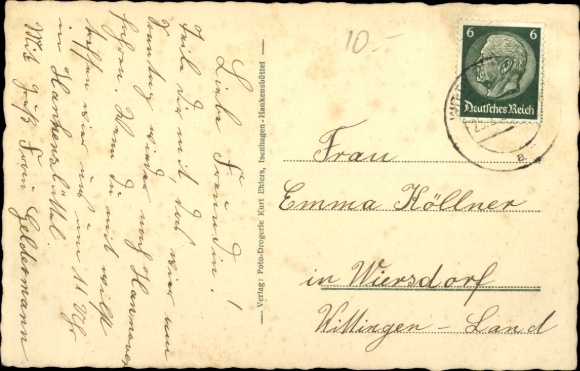 Liebe Freundin!
Teile Dir mit das wir am
Sonntag wieder nach Hannover
fahren. Wenn Du mit willst
treffen wir uns um 11 Uhr
in Hankensbüttel.
Mit Gruß Frau Geldermann
Verlag: Foto-Drogerie Kurt Ehlers, Isenhagen-Hankensbüttel
10.-
6 6
Deutsches Reich
Frau
Emma Köllner
in Wiersdorf
Wittingen - Land